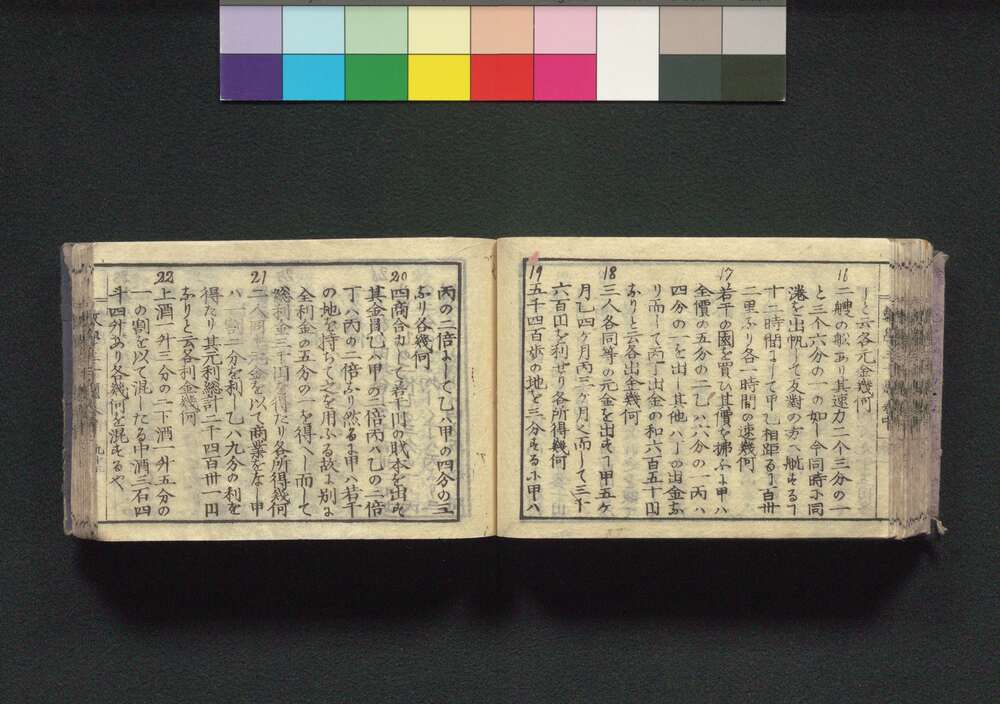 しと云各元金幾何
16 二艘の舩あり其速力二个三分の一
と三个六分の一の如し今同時に同
港を出帆して反對の方へ航する丁
十二時間にして甲乙相距る丁百卅
二里なり各一時間の速幾何
17 若干の園を買ひ其價を拂ふに甲ハ
全價の五分の二乙ハ六分の一丙ハ
四分の一を出し其他ハ丁の出金な
り而して丙丁出金の和六百五十円
なりと云各出金幾何
18 三人各同等の元金を出す丁甲五ケ
月乙四ケ月丙三ケ月人而して三千
六百円を利せり各所得幾何
19 五千四百歩の地を三分するに甲ハ
丙の二倍にして乙ハ甲の四分の三
なり各幾何
20 四商合力して若干円の財本を出す
其金員乙ハ甲の二倍丙ハ乙の二倍
丁ハ丙の二倍なり然るに甲ハ若干
の地を持ちて之を用ふる故に別に
全利金の五分の一を得へし而して
総利金三千円を得たり各所得幾何
21 二人同し元金を以て商業をなし甲
ハ一割二分を利し乙ハ九分の利を
得たり其元利総計二千四百卅一円
なりと云各利金幾何
22 上酒一升三分の二下酒一升五分の
一の割を以て混したる中酒三石四
斗四升あり各幾何を混するや